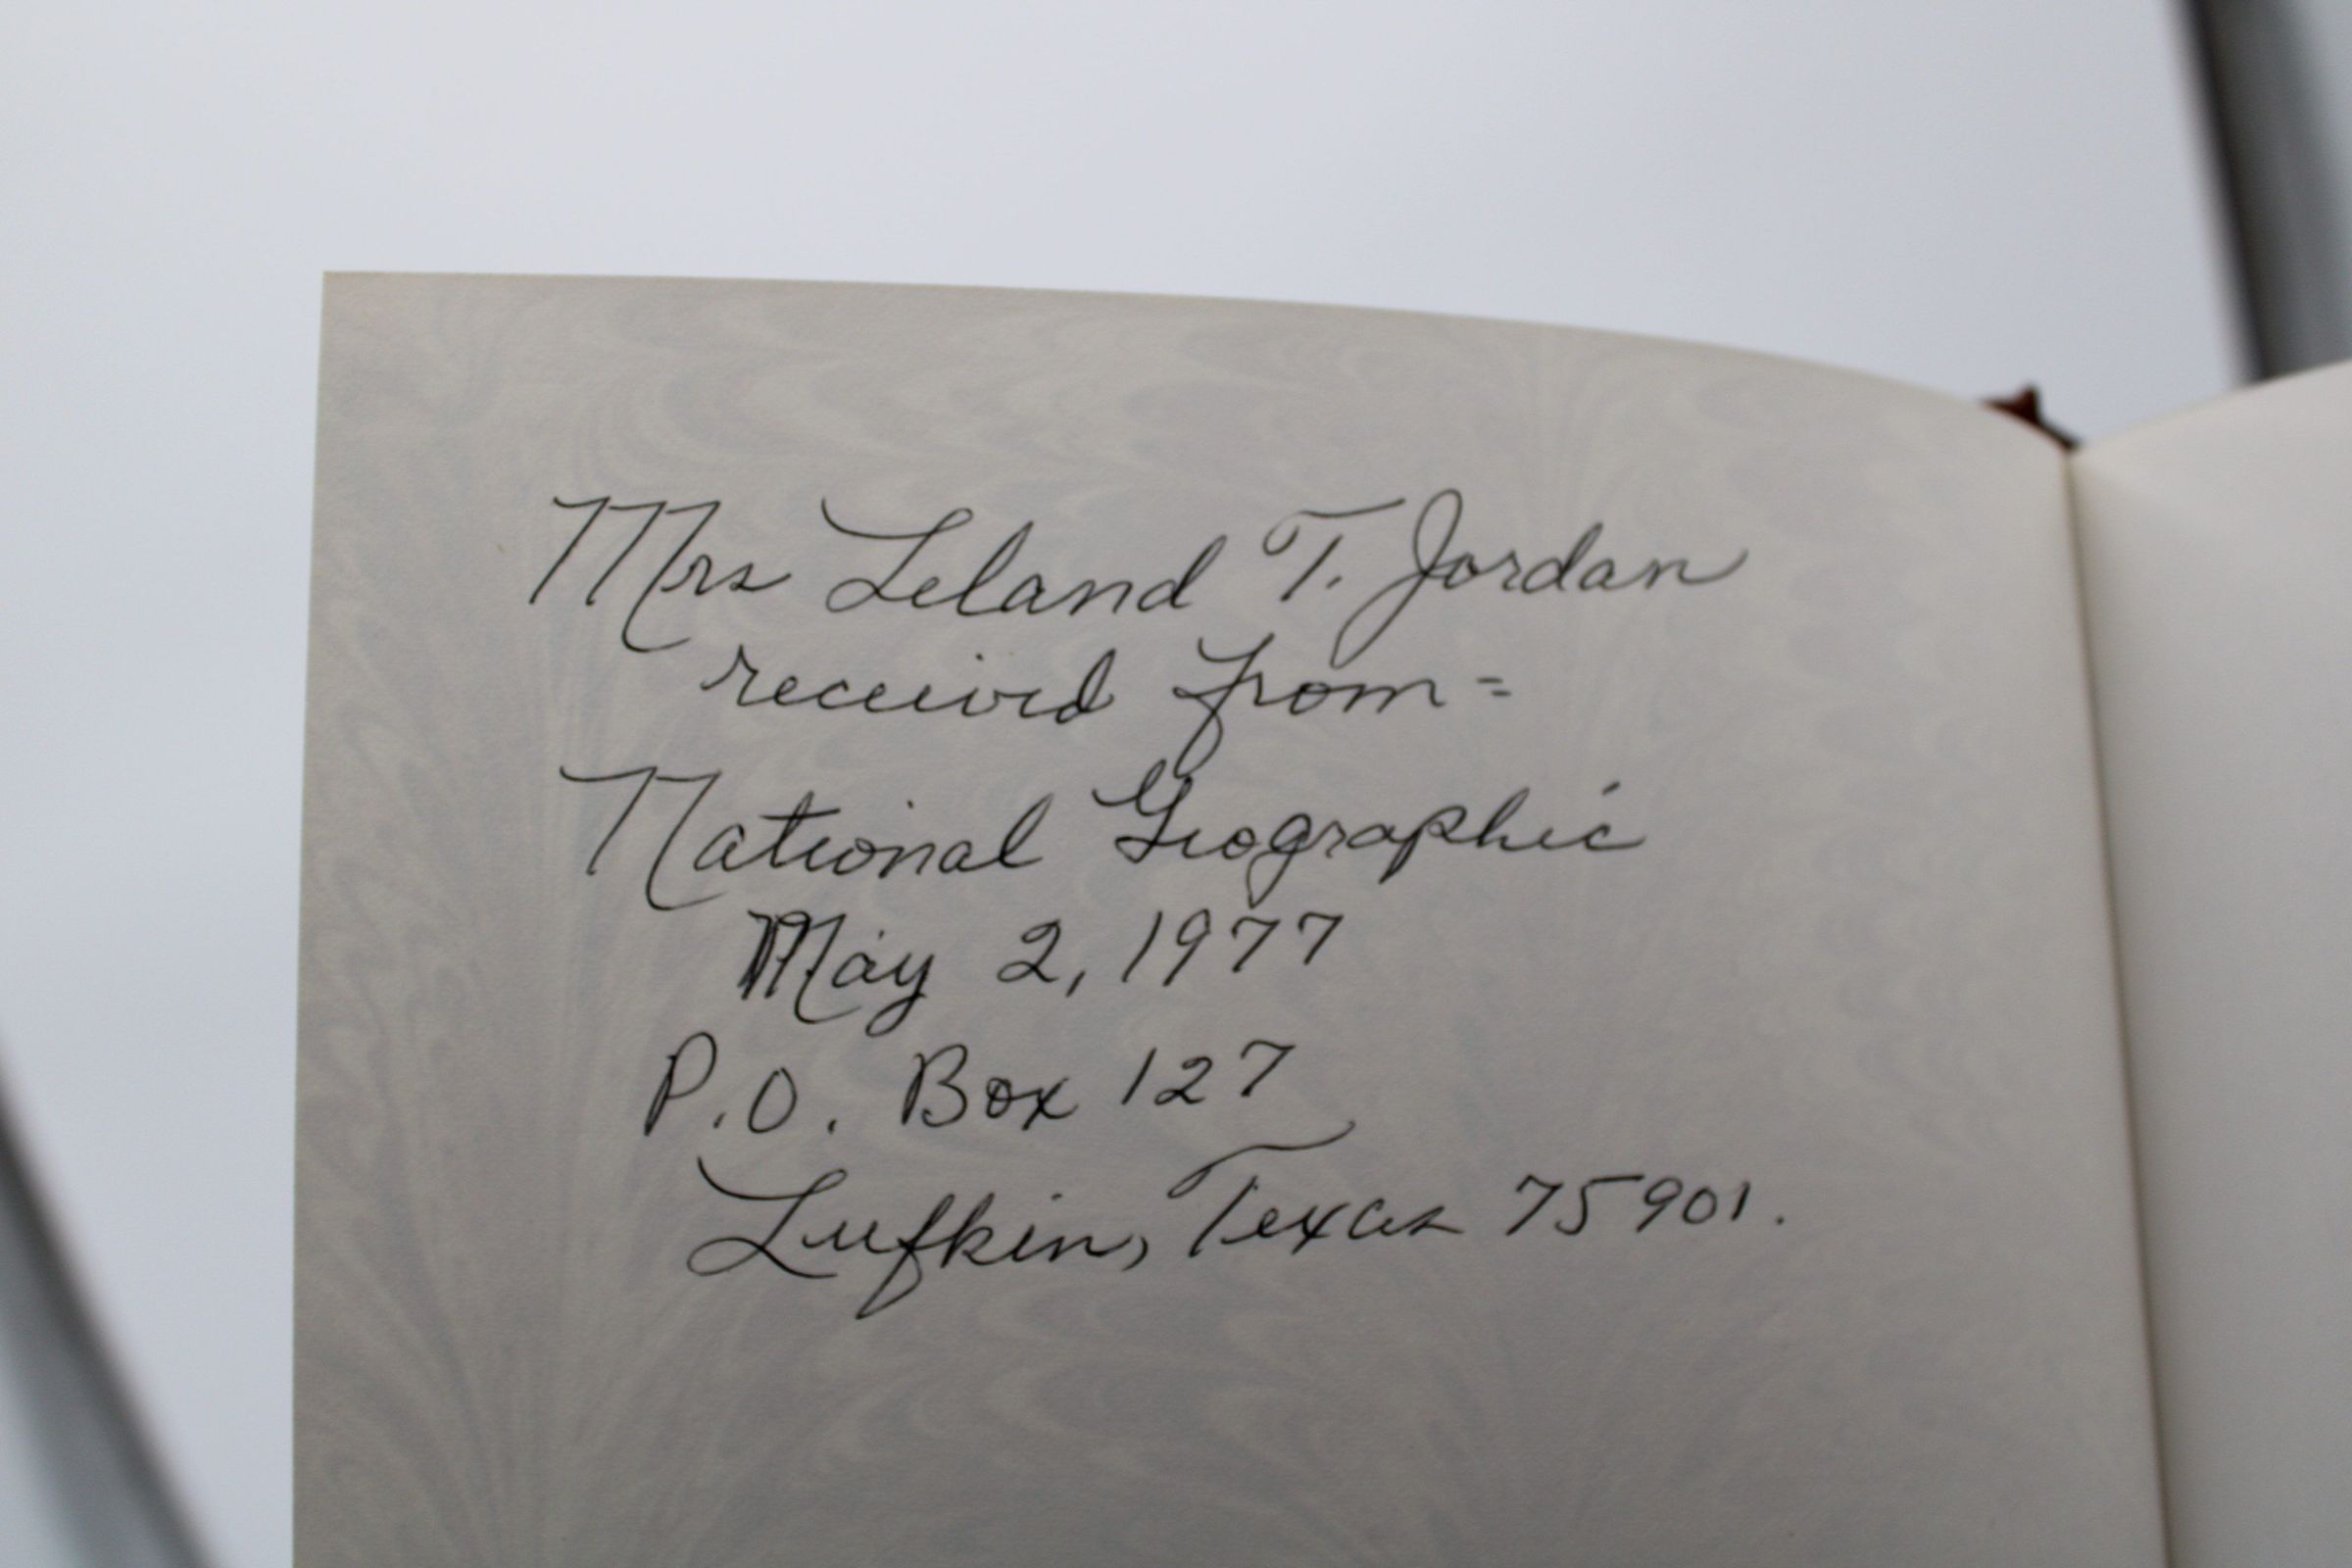 Mrs Leland T. Jordan
received from=
National Geographic
May 2, 1977
P.O. Box 127
Lufkin, Texas 75901.